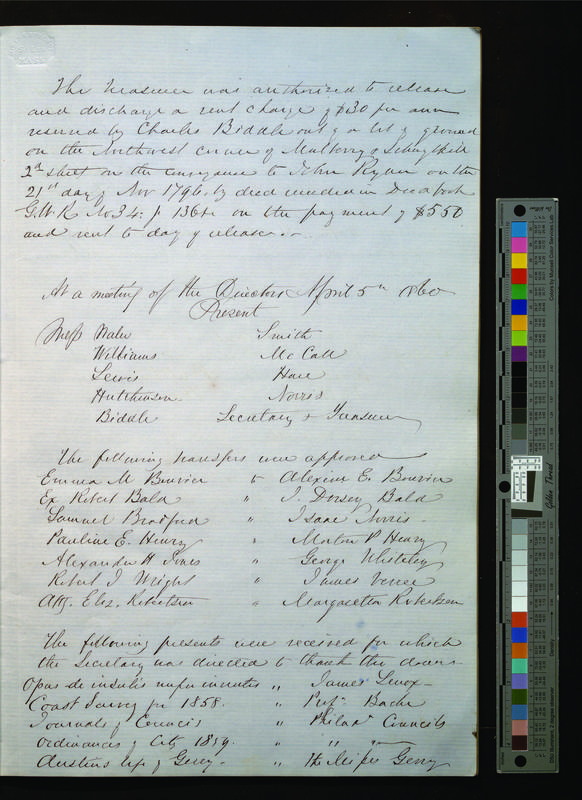 The Treasurer was authorized to release
and discharge a rent charge of $30 per ann
reserved by Charles Biddle out of a lot of ground
on the Northwest corner of Mulberry & Schuylkill
2d street on the conveyance to John Rynn on the
21st day of Nov 1796. by deed recorded in Deed book
G.W.R No 34: p 136 &c on the payment of $550
and rent to day of release.
At a meeting of the Directors April 5th 1860
Present
Messrs Wain Smith
Williams McCall
Lewis Hare
Hutchinson Norris
Biddle Secretary & Treasurer
The following transfers were approved
Emma M Bouvier to Alexine E. Bouvier
Ex Robert Bald " J. Dorsey Bald
Samuel Bradford " Isaac Norris
Pauline E. Henry " Morton P Henry
Alexander H Jones " George Whiteley
Robert J Wright " James Verree
Atty. Eliz. Robertson " Margaretta Robertson
The following presents were received for which
the Secretary was directed to thank the donors
Opus de insulis nuper inventis " James Lenox
Coast Survey for 1858. " Prof. Bache
Journals of Councils " Philada Councils
Ordinances of City 1859. " " "
Austins life of Gerry. " The Misses Gerry